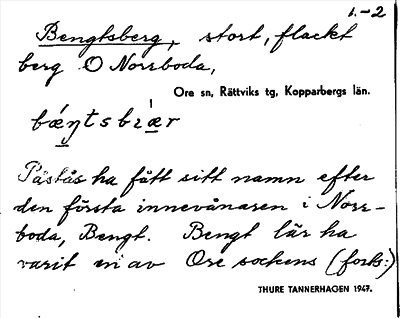 1.-2
Bengtsberg, stort, flackt
berg O Norrboda,
Ore sn, Rättviks tg, Kopparbergs län.
Påstås ha fått sitt namn efter
den första innevånaren i Norr-
boda, Bengt. Bengt lär ha
varit en av Ore sockens (forts:)
THURE TANNERHAGEN 1947.